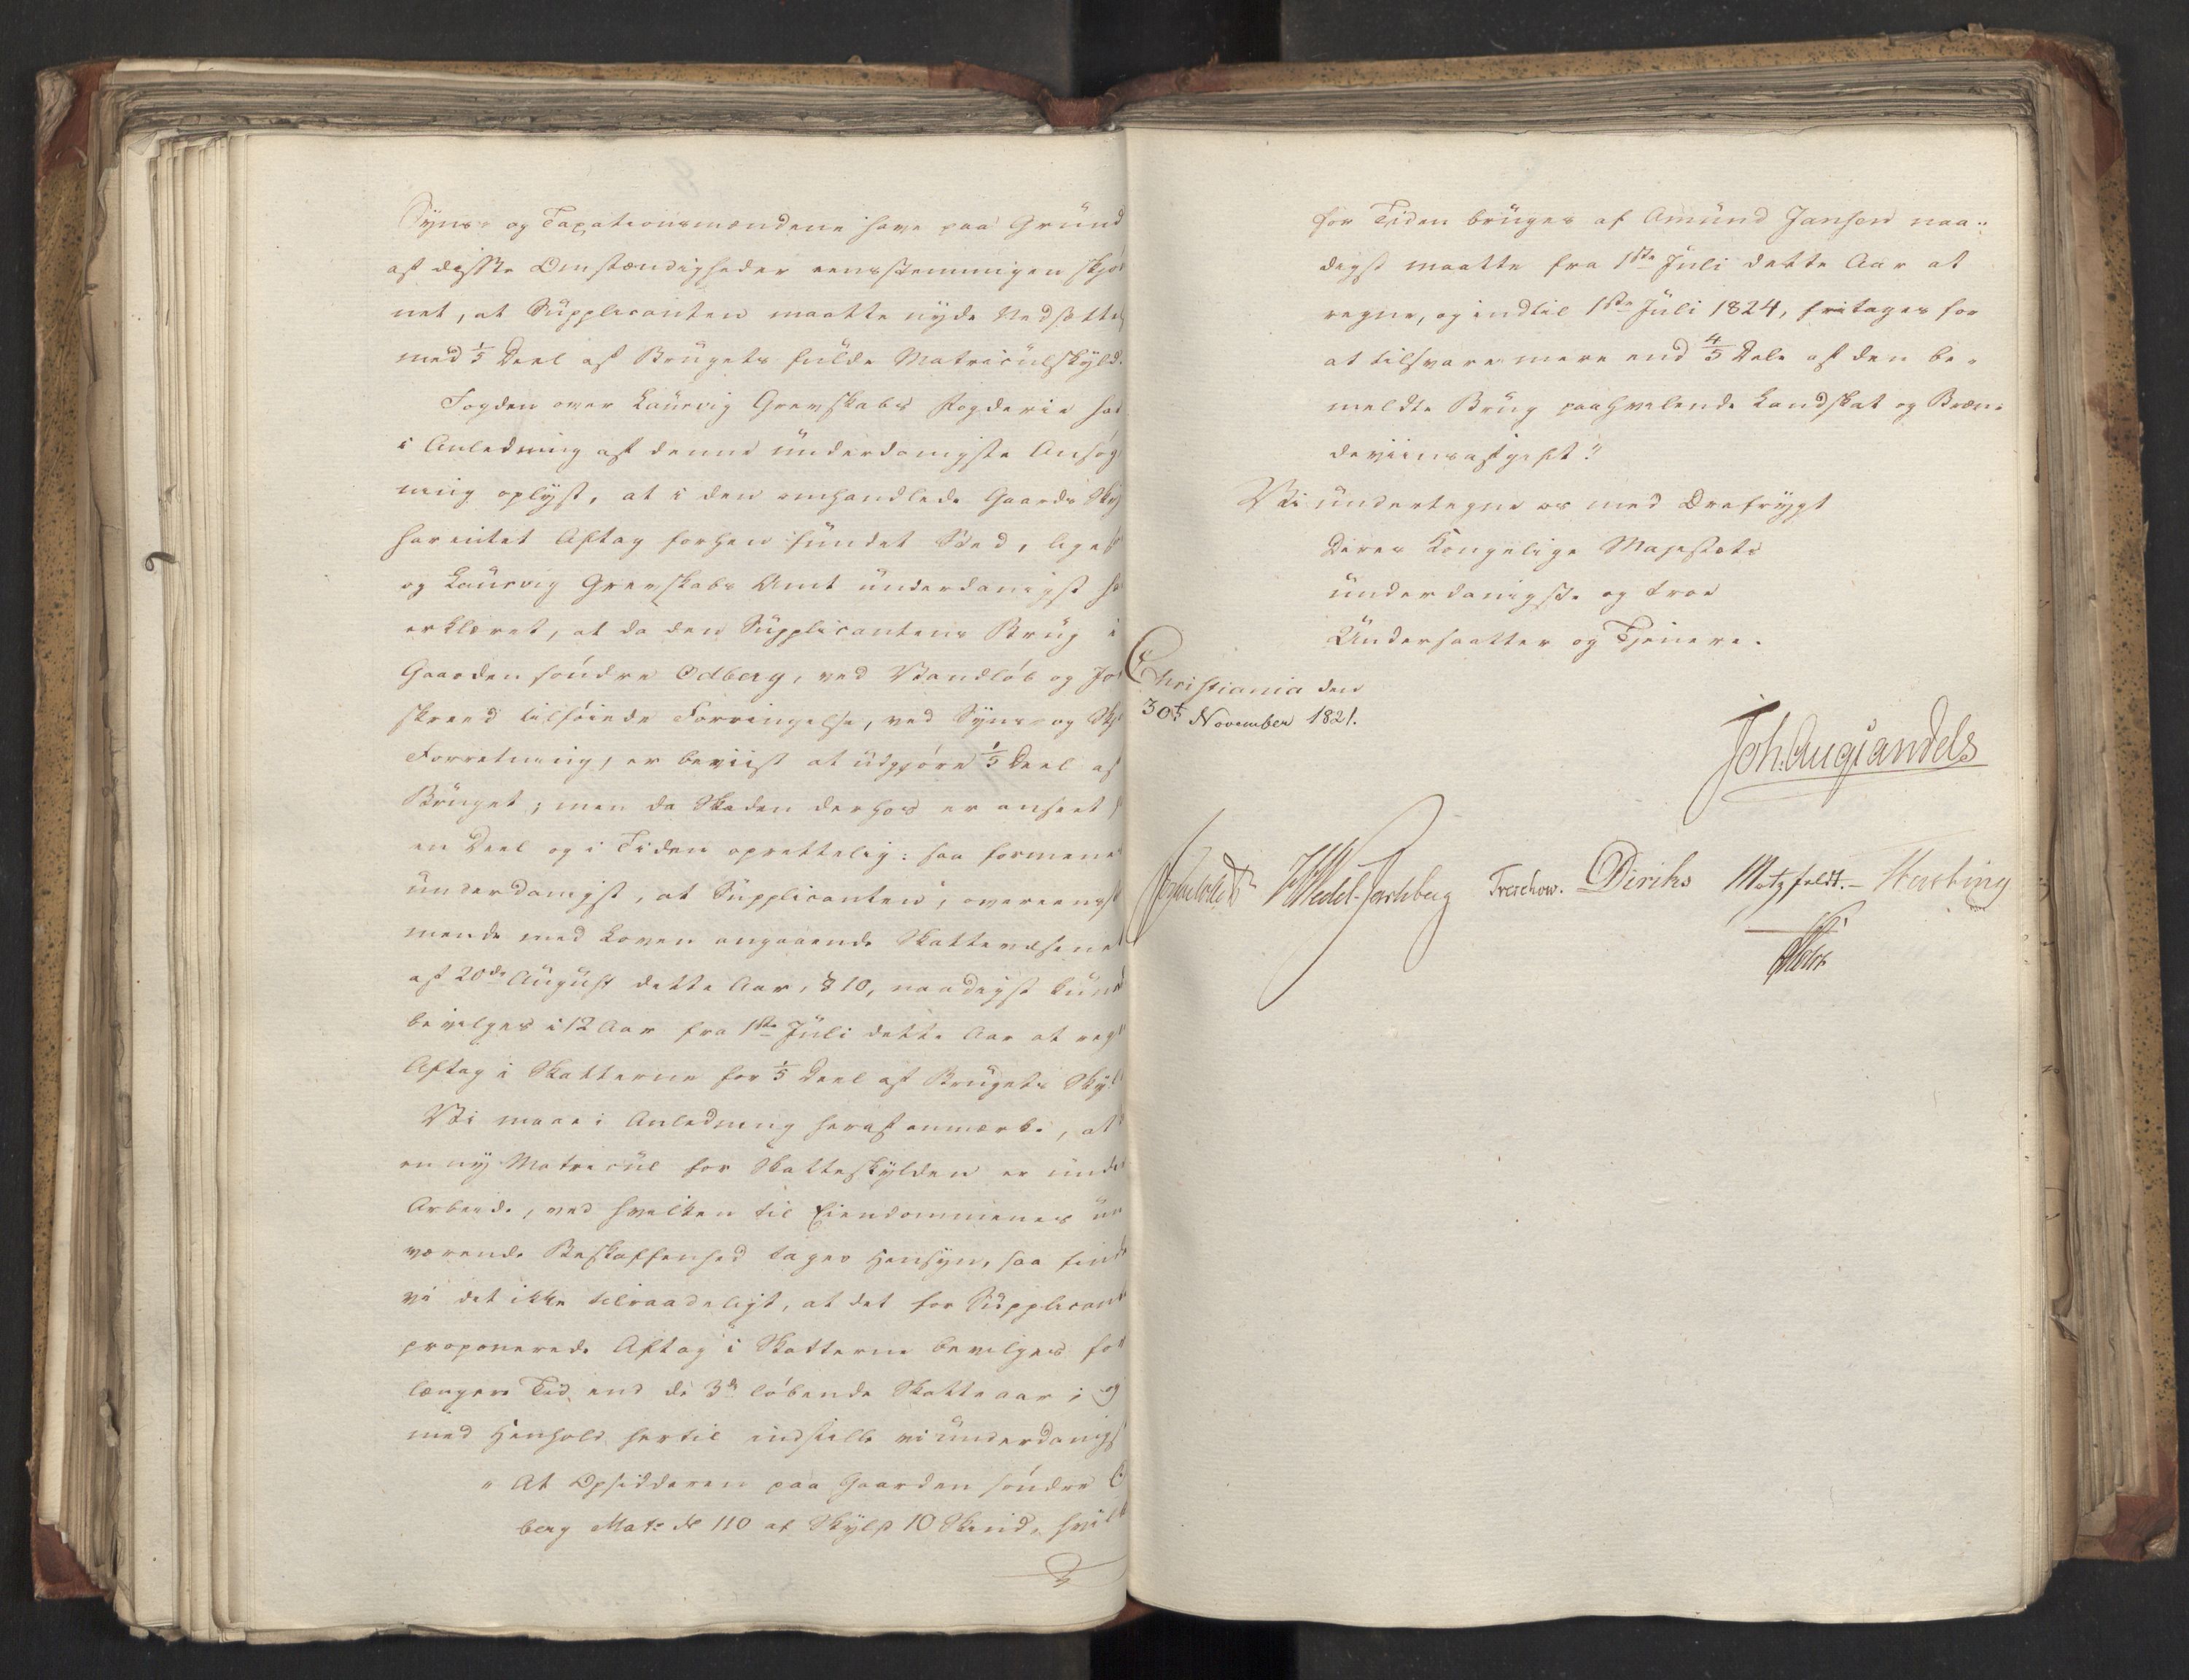 Syns- og Taxationsmændene have paa Grund
af disse Omstændigheder eensstemmigen skjøn
net, at Supplicanten maatte nyde Nedsættel
med 1/5 Deel af Brugets fulde Matriculskyld.
Fogden over Laurvig Grevskabs Fogderie har
i Anledning af denne underdanigste Ansøg
ning oplyst, at i den omhandlede Gaards Sky
har intet Aftag forhen fundet Sted, liges
og Laurvig Grevskabs Amt underdanigst ha
erklæret, at da den Supplicantens Brug i
Gaarden søndre Odberg, ved Vandløb og Jo
skreed tilføiede Forringelse, ved Syns- og Skj
Forretning, er beviist at udgjøre 1/5 Deel af
Bruget; men da Skaden derhos er anseet f
en Deel og i Tiden oprettelig: saa formenes
underdanigst, at Supplicanten, overeenst
mende med Loven angaaende Skattevæsenet
af 20de August dette Aar, § 10, naadigst kund
bevilges i 12 Aar fra 1ste Juli dette Aar at reg
Aftag i Skatterne for 1/5 Deel af Brugets Skyl
Vi maae i Anledning heraf anmærke, at
en ny Matricul for Skatteskylden er unde
Arbeide, ved hvilken til Eiendommenes nu
værende Beskaffenhed tages Hensyn, saa finde
vi det ikke tilraadeligt, at det for Supplicant
proponerede Aftag i Skatterne bevilges for
længere Tid end de 3de løbende Skatteaar; og
med Henhold hertil indstille vi underdanigst
" At Opsidderen paa Gaarden søndre O
berg Matr: No 110 af Skyld 10 Skind, hvilk
for Tiden bruges af Amund Jansen naa-
digst maatte fra 1ste Juli dette Aar at
regne, og indtil 1ste Juli 1824, fritages for
at tilsvare mere end 4/5 Dele af den be-
meldte Brug paahvilende Landskat og Bræn-
deviinsafgift."
Vi undertegne os med Ærefrygt
Deres Kongelige Majestæts
underdanigste og troe
Undersaatter og Tjenere.
Christiania den
30te November 1821.
Joh. Aug. Sandels
Sommerhielm HWedel-Jarlsberg Treschow. Diriks Motzfeldt.- Fasting